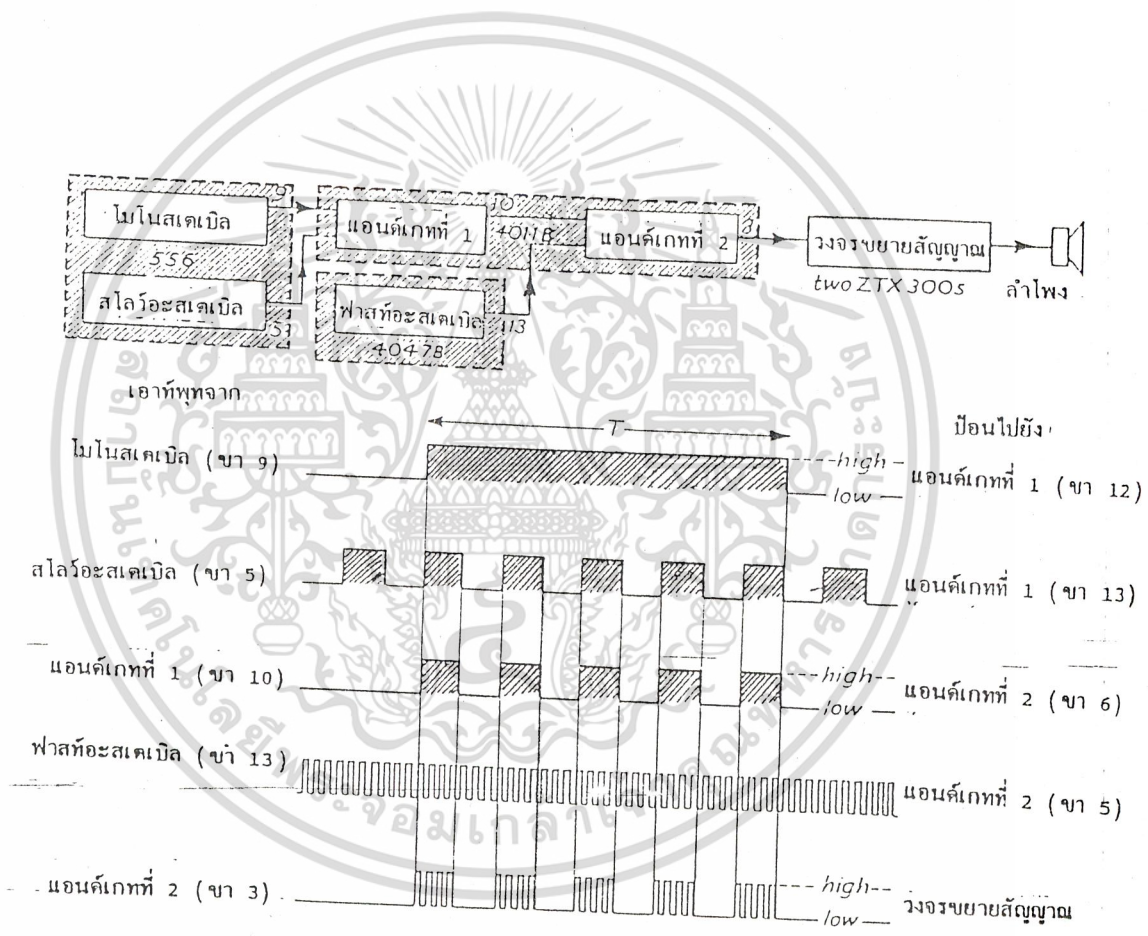 ไมโนสเตเบิล
9
556
สโลว์อะสเตเบิล
5
แอนด์เกทที่ 1
10
4011B
แอนด์เกทที่ 2
3
ฟาสท์อะสเตเบิล
13
4047B
วงจรขยายสัญญาณ
two ZTX 300s
ลำโพง
เอาท์พุทจาก
ป้อนไปยัง
T
ไมโนสเตเบิล (ขา 9)
high
low
แอนด์เกทที่ 1 (ขา 12)
สโลว์อะสเตเบิล (ขา 5)
แอนด์เกทที่ 1 (ขา 13)
แอนด์เกทที่ 1 (ขา 10)
high
low
แอนด์เกทที่ 2 (ขา 6)
ฟาสท์อะสเตเบิล (ขา 13)
แอนด์เกทที่ 2 (ขา 5)
แอนด์เกทที่ 2 (ขา 3)
high
low
วงจรขยายสัญญาณ